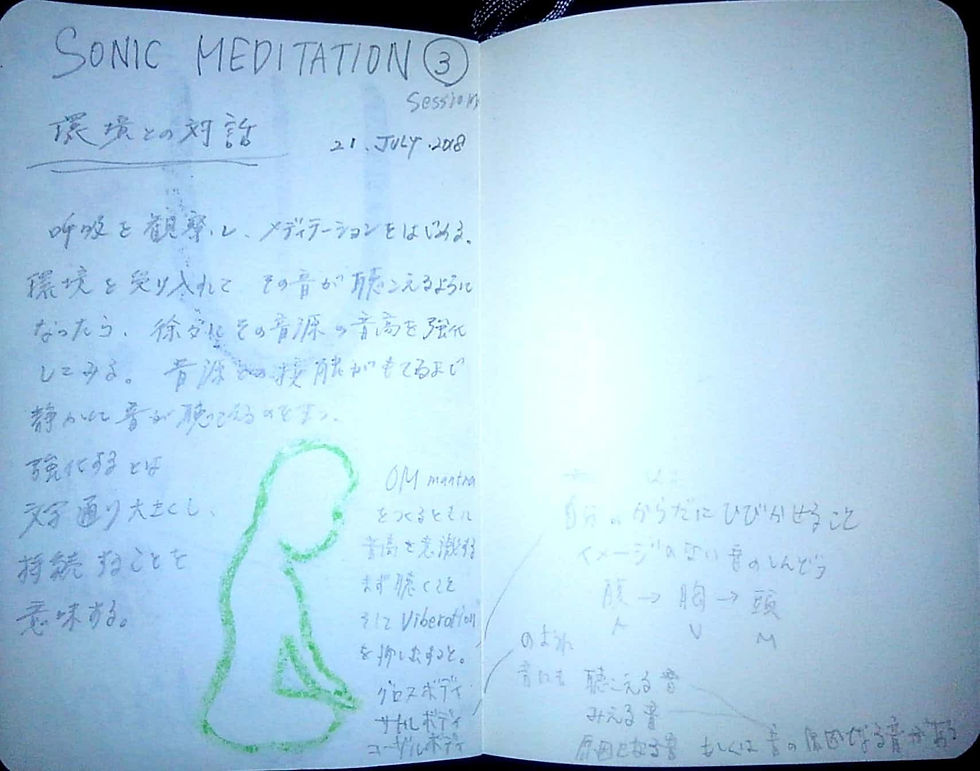 SONIC MEDITATION ③
Session
環境との対話
21.JULY.2018
呼吸を観察し、メディテーションをはじめる。
環境を受け入れて その音が聴こえるように
なったら、徐々にその音源の音高を強化
してみる。音源との接触がもてるまで
静かに音が聴こえるのをまつ。
強化するとは
文字通り大きくし、
持続することを
意味する。
OM mantra
をつくるときに
音高を意識する
まず聴くこと
そして Viberation
を
グロスボディ
サトルボディ
コーザルボディ
自分のからだにひびかせること
イメージのない音のしんどう
腹→胸→頭
A U M
音にも 聴こえる音
みえる音
原因となる音 もしくは 音の原因となる音がある